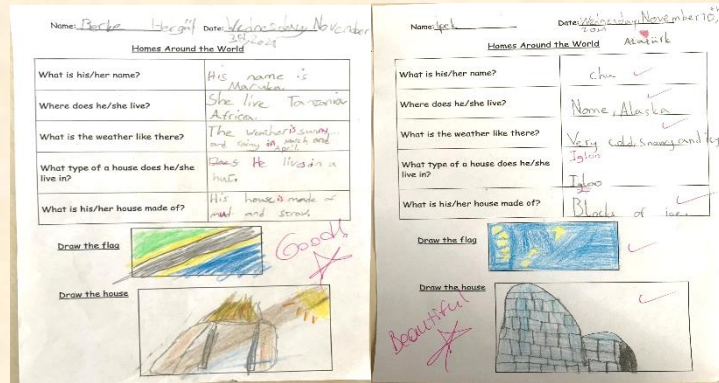 Name: Berke Date: Wednesday, November
3rd, 2021
Homes Around the World
What is his/her name?
His name is
Maruka.
Where does he/she live?
She live Tanzania
Africa.
What is the weather like there?
The weather is sunny
and rainy in march and
April.
What type of a house does he/she
live in?
Does He lives in a
hut.
What is his/her house made of?
His house is made of
mud and straw.
Draw the flag
Good!
Draw the house
Name: Ipek Date: Wednesday, November 10,th
2021
Homes Around the World Atatürk
What is his/her name?
Chu
Where does he/she live?
Nome, Alaska
What is the weather like there?
Very cold, snowy and icy
What type of a house does he/she
live in?
Igloo
Igloo
What is his/her house made of?
Blocks of ice.
Draw the flag
Draw the house
Beautiful